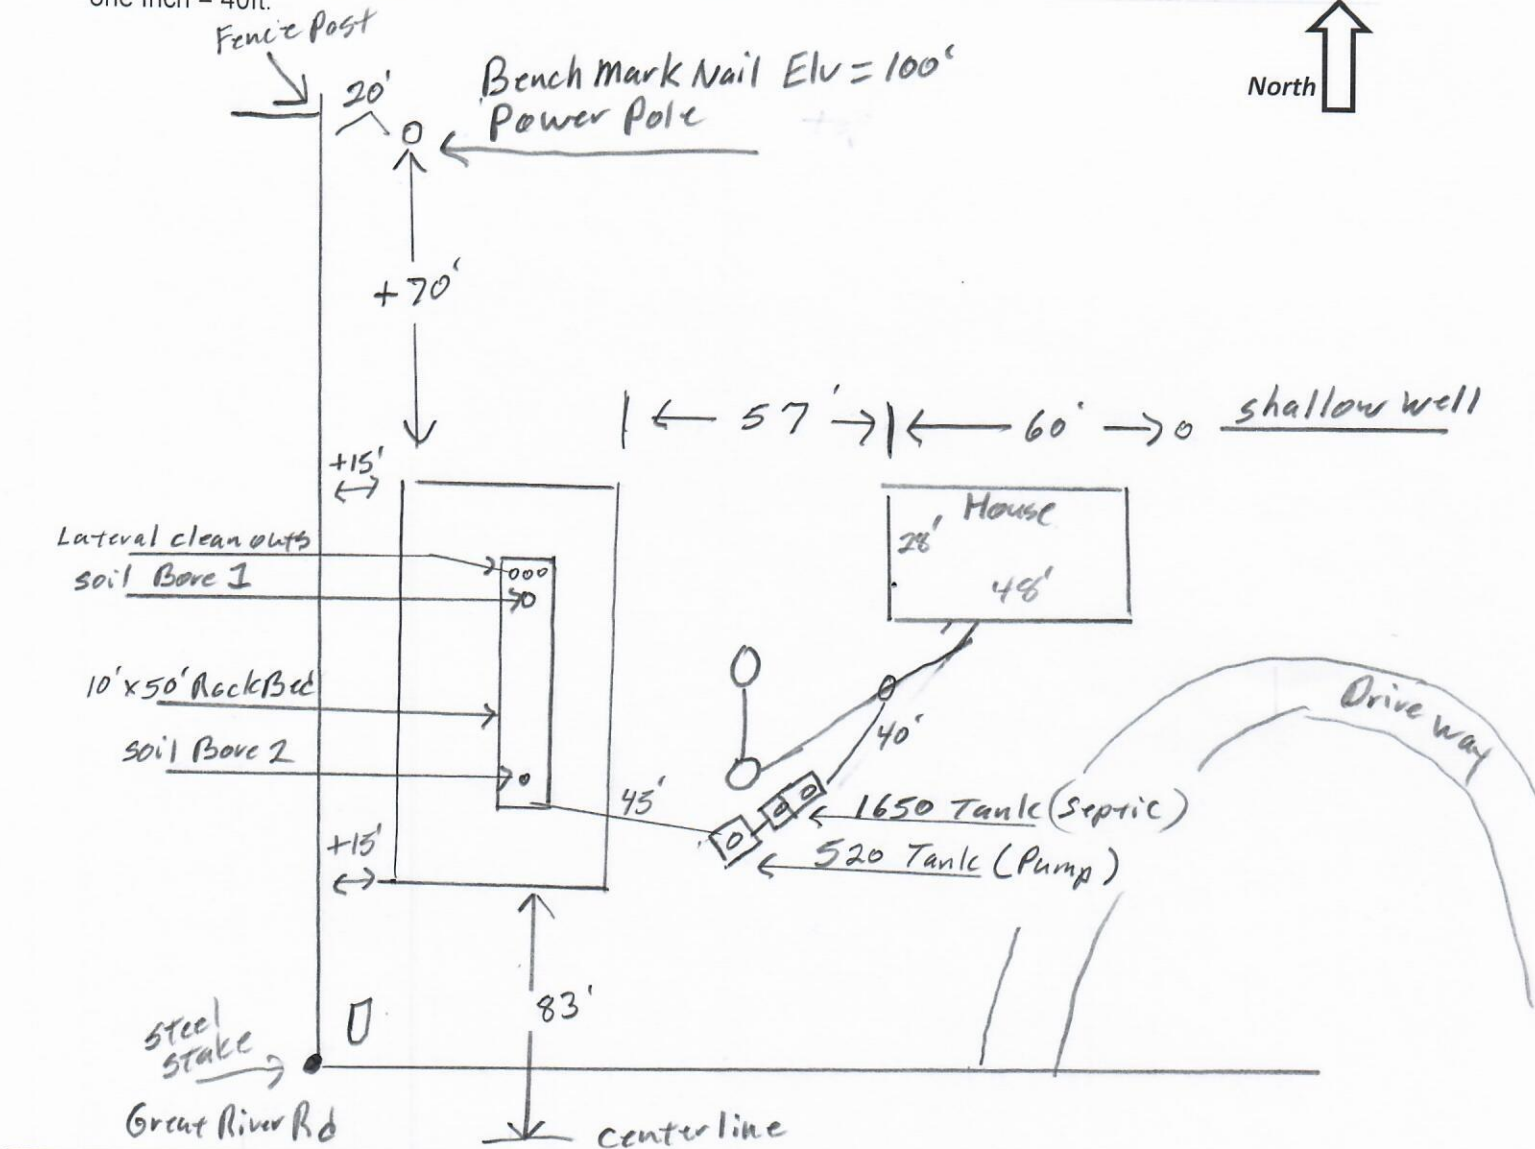 one inch = 40ft.
Fence Post
20'
Bench Mark Nail Elv = 100'
Power Pole
North
+70'
57'
60'
shallow well
+15'
House
28'
48'
Lateral clean outs
soil Bore 1
10' x 50' Rock Bed
soil Bore 2
40'
Drive way
45'
1650 Tank (Septic)
520 Tank (Pump)
+15'
83'
Steel
Stake
Great River Rd
centerline